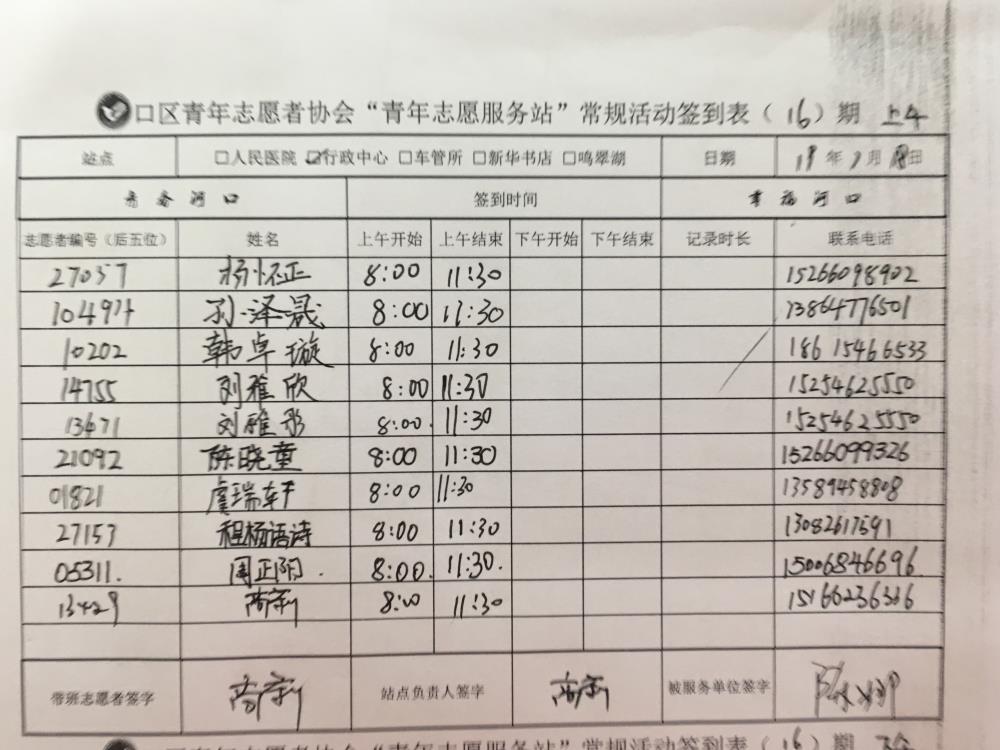 口区青年志愿者协会“青年志愿服务站”常规活动签到表（16）期 上午
站点 □人民医院 ☑行政中心 □车管所 □新华书店 □鸣翠湖 日期 年 月 日
青春河口 签到时间 幸福河口
志愿者编号（后五位） 姓名 上午开始 上午结束 下午开始 下午结束 记录时长 联系电话
27057 杨怀正 8:00 11:30 15266098902
10497 孙泽晟 8:00 11:30 13864776501
10202 韩卓璇 8:00 11:30 18615466533
14755 刘雅欣 8:00 11:30 15254625550
13671 刘雅彤 8:00 11:30 15254625550
21092 陈晓童 8:00 11:30 15266099326
01821 虞瑞轩 8:00 11:30 13589458808
27153 程杨语诗 8:00 11:30 13082617591
05311. 周正阳. 8:00. 11:30. 15006846696
13429 8:00 11:30 15166236366
带班志愿者签字 站点负责人签字 被服务单位签字
“青年志愿服务站”常规活动签到表（16）期